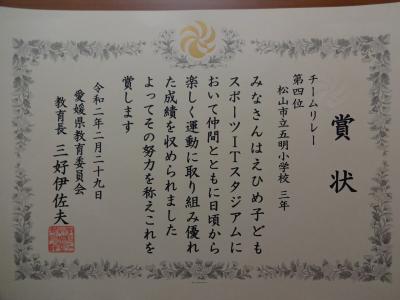 賞状
チームリレー
第四位
松山市立五明小学校 三年
みなさんはえひめ子ども
スポーツITスタジアムに
おいて仲間とともに日頃から
楽しく運動に取り組み優れ
た成績を収められました
よってその努力を称えこれを
賞します
令和二年二月二十九日
愛媛県教育委員会
教育長 三好伊佐夫